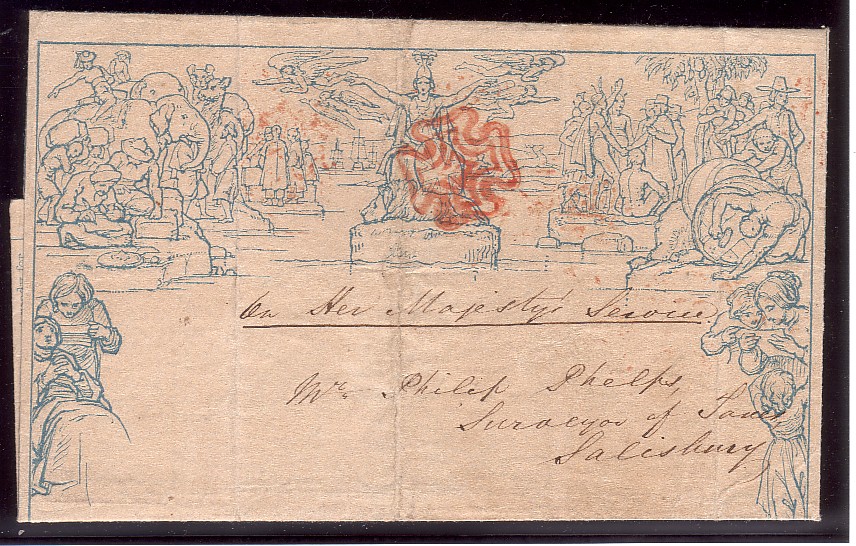 On Her Majesty's Service
Mr. Philip Phelps,
Surveyor of Taxes
Salisbury